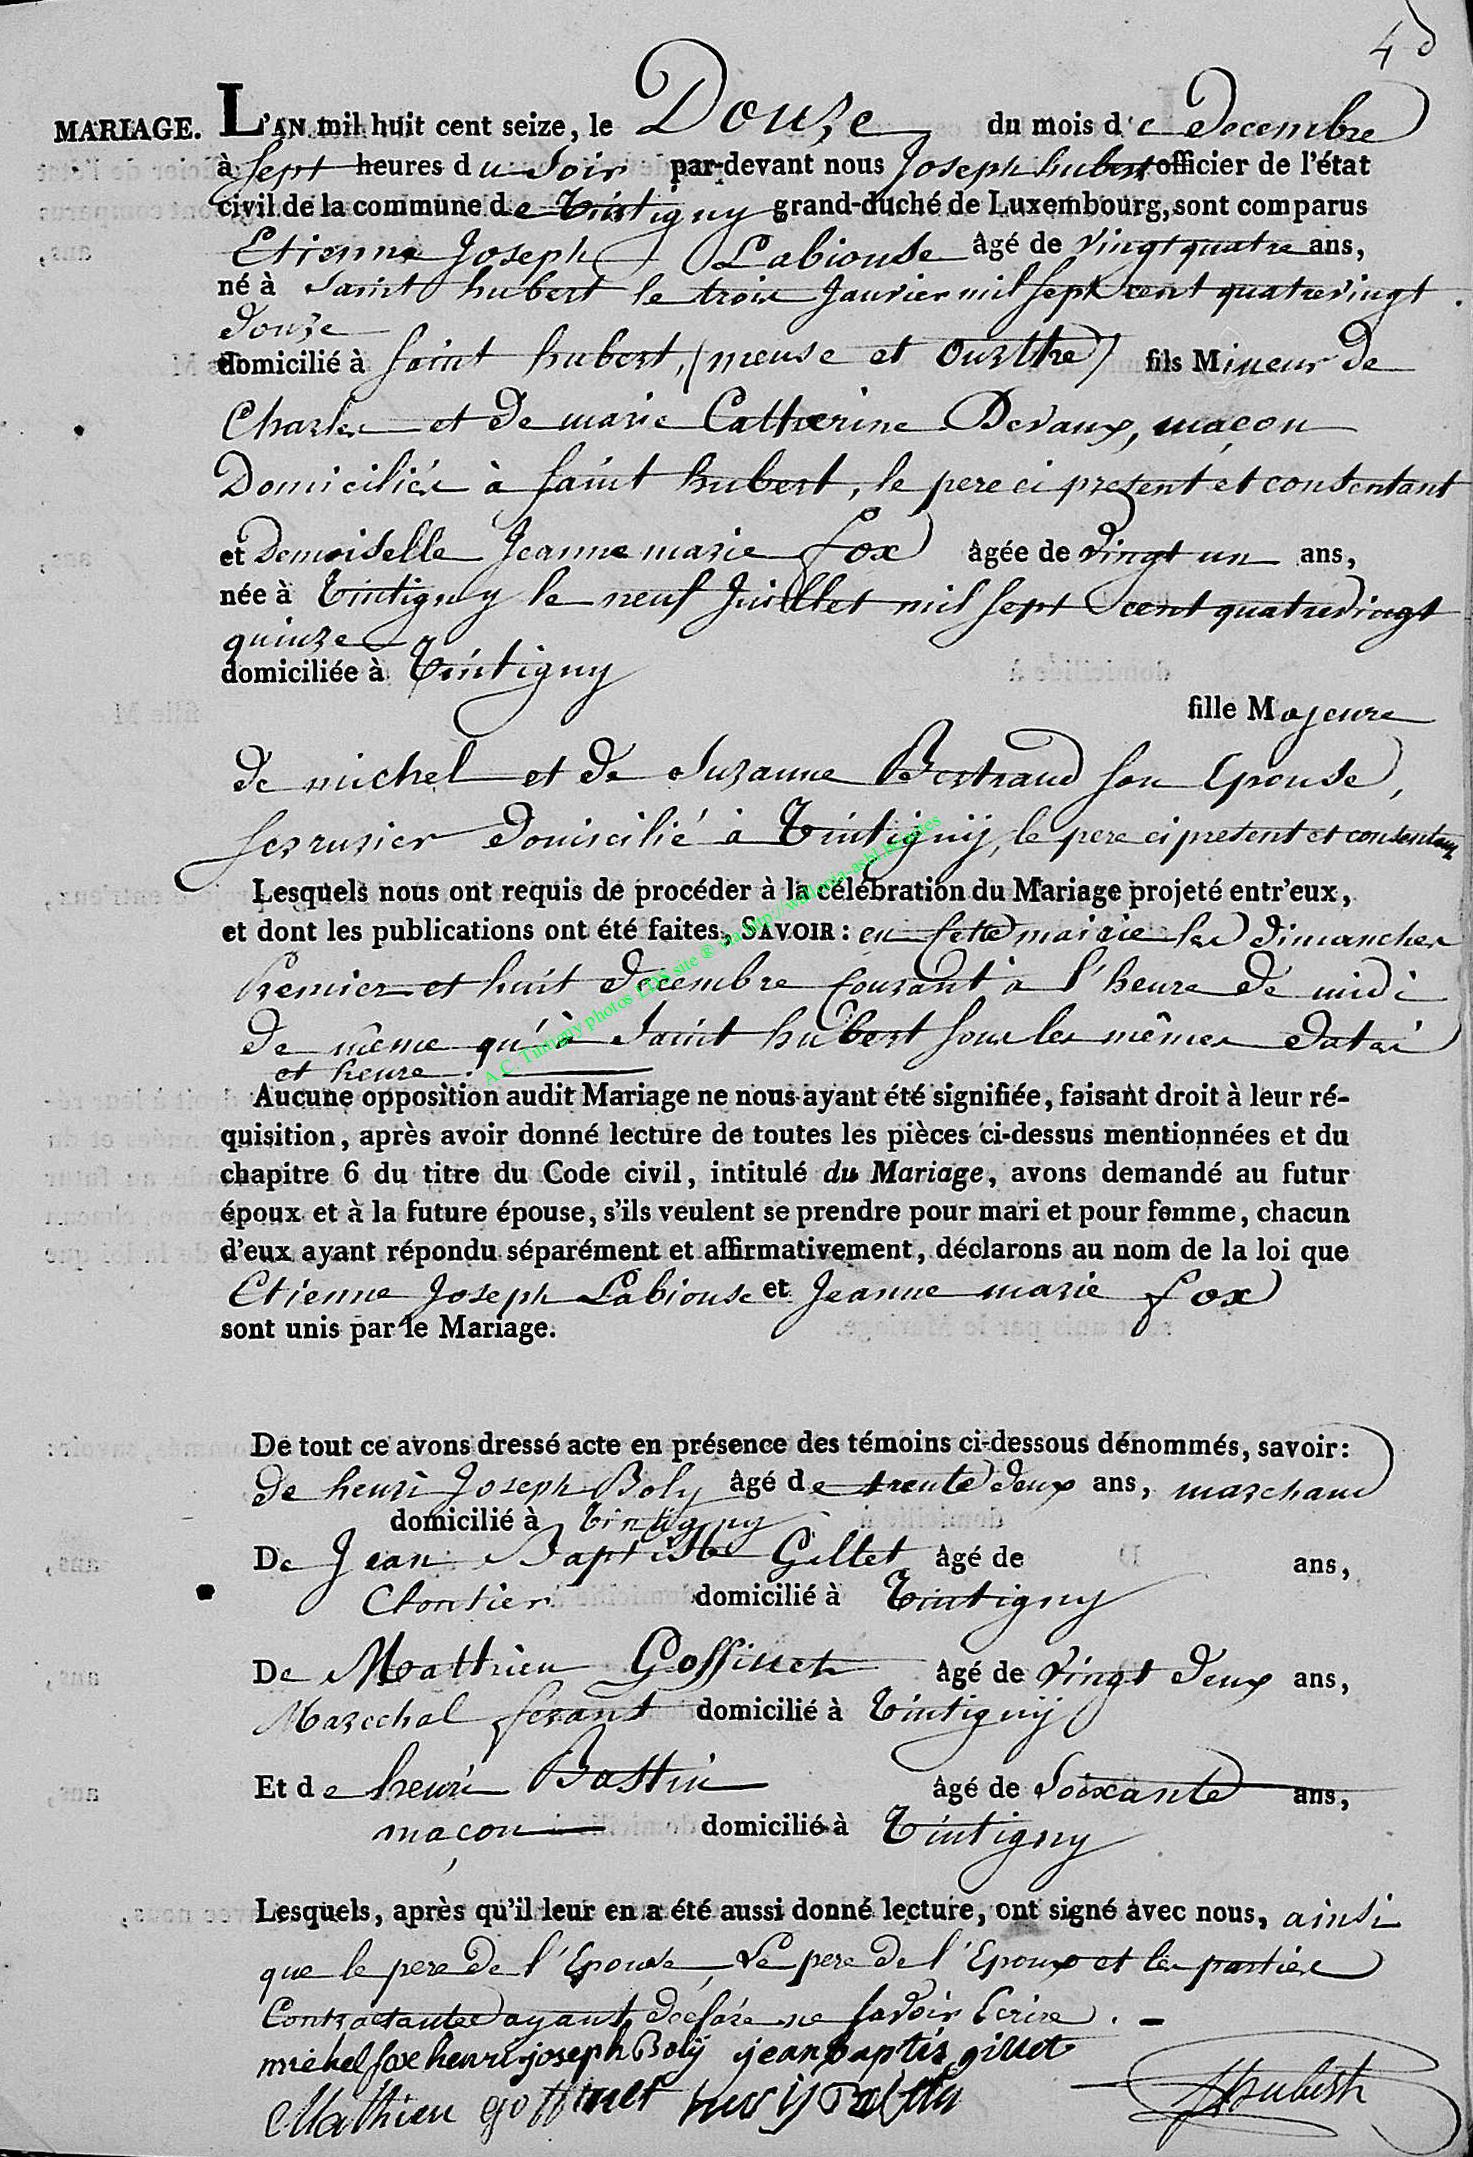 40
MARIAGE. L'AN mil huit cent seize, le Douze du mois de Decembre
à sept heures du Soir par-devant nous Joseph hubert officier de l'état
civil de la commune de Tintigny grand-duché de Luxembourg, sont comparus
Etienne Joseph Labiouse âgé de vingt quatre ans,
né à Saint hubert le trois Janvier mil sept cent quatrevingt
douze
domicilié à saint hubert, (meuse et Ourthe) fils Mineur de
Charles et de marie Catherine Devaux, maçon
Domiciliés à saint hubert, le pere ci present et consentant
et Demoiselle Jeanne marie fox âgée de vingt un ans,
née à Tintigny le neuf Juillet mil sept cent quatrevingt
quinze
domiciliée à Tintigny
fille Majeure
de michel et de Suzanne Bertrand son Epouse,
serrurier domicilié à Tintigny, le pere ci present et consentant
Lesquels nous ont requis de procéder à la célébration du Mariage projeté entr'eux,
et dont les publications ont été faites, SAVOIR : en cette mairie les dimanches
Premier et huit décembre courant à l'heure de midi
de même qu'à Saint hubert sous les mêmes dates
et heure.
A.C. Tintigny photos LDS site ® via http://wallonia-asbl.be/actes
Aucune opposition audit Mariage ne nous ayant été signifiée, faisant droit à leur ré-
quisition, après avoir donné lecture de toutes les pièces ci-dessus mentionnées et du
chapitre 6 du titre du Code civil, intitulé du Mariage, avons demandé au futur
époux et à la future épouse, s'ils veulent se prendre pour mari et pour femme, chacun
d'eux ayant répondu séparément et affirmativement, déclarons au nom de la loi que
Etienne Joseph Labiouse et Jeanne marie fox
sont unis par le Mariage.
De tout ce avons dressé acte en présence des témoins ci-dessous dénommés, savoir:
de henri Joseph Boly âgé de trente deux ans, marchand
domicilié à Tintigny
De Jean Baptiste Gillet âgé de ans,
Cloutier domicilié à Tintigny
De Matthieu Goffinet âgé de vingt deux ans,
Marechal ferant domicilié à Tintigny
Et de henri Bastin âgé de Soixante ans,
maçon domicilié à Tintigny
Lesquels, après qu'il leur en a été aussi donné lecture, ont signé avec nous, ainsi
que le pere de l'Epouse, Le pere de l'Epoux et les parties
Contractantes ayant déclaré ne savoir Ecrire.
michel fox henri joseph Boly jean baptis gillet
Mathieu goffinet JHubert